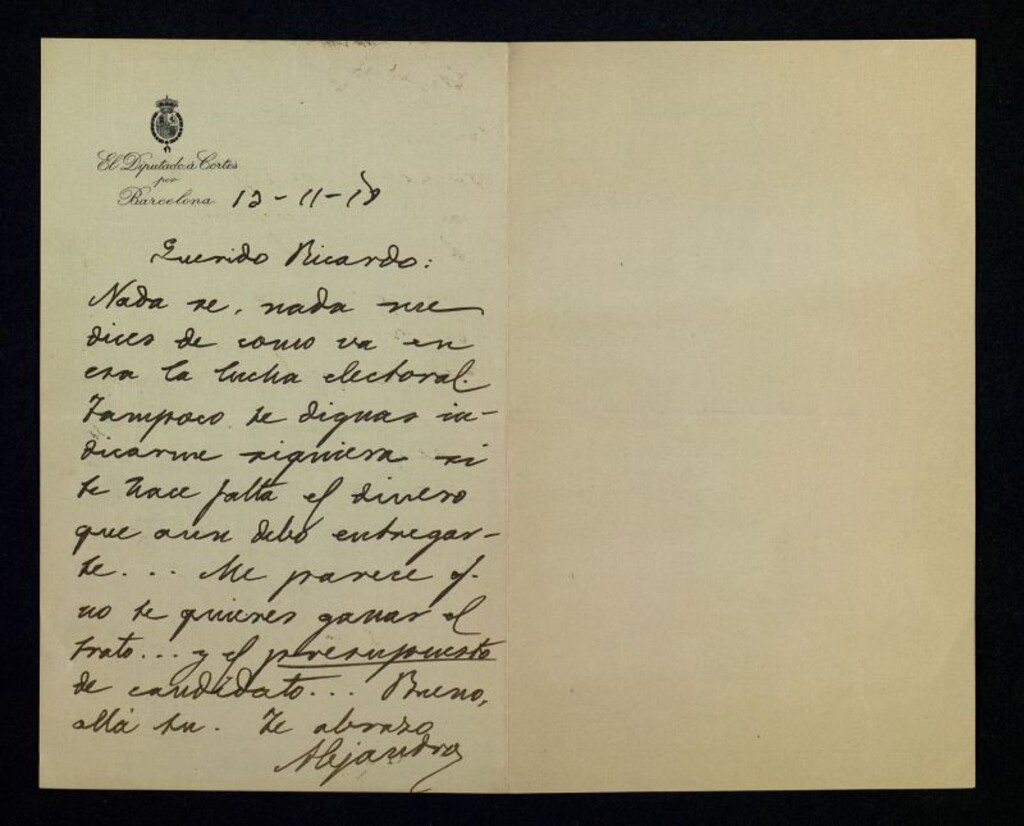 El Diputado á Cortes
por
Barcelona 13-11-18
Querido Ricardo:
Nada se, nada me
dices de como va en
esa la lucha electoral.
Tampoco te dignas in-
dicarme siquiera si
te hace falta el dinero
que aun debo entregar-
te... Me parece q.
no te quieres ganar el
trato... y el presupuesto
de candidato... Bueno,
allá tu. Te abraza
Alejandro